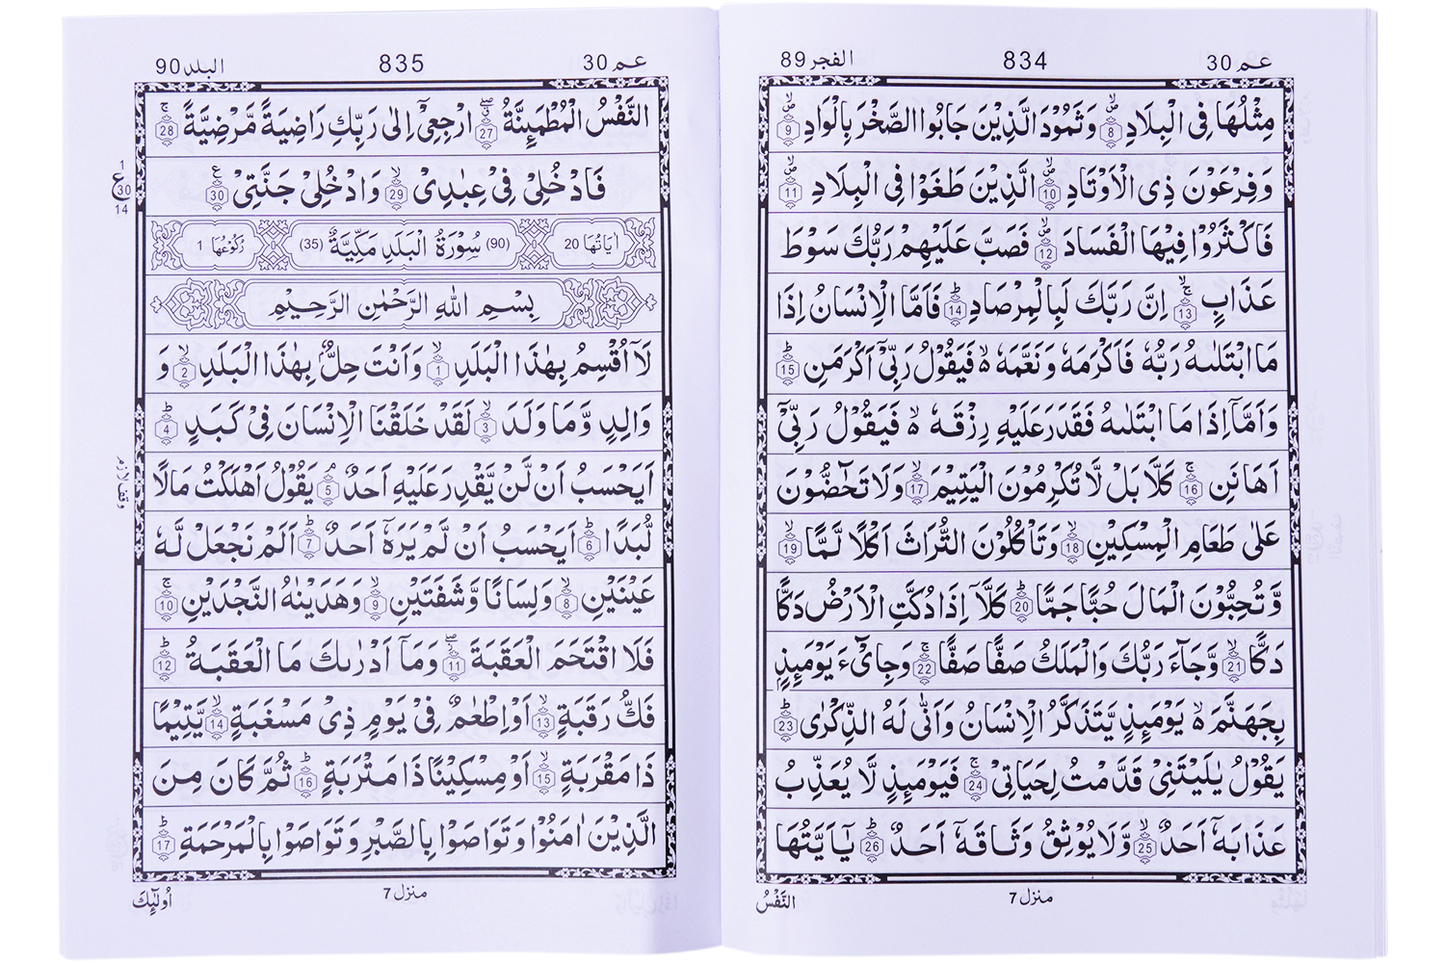 عـم 30 834 الفجر 89
مِثْلُهَا فِى الْبِلَادِ 8 وَثَمُوْدَ الَّذِيْنَ جَابُوا الصَّخْرَ بِالْوَادِ 9
وَفِرْعَوْنَ ذِى الْاَوْتَادِ 10 الَّذِيْنَ طَغَوْا فِى الْبِلَادِ 11
فَاَكْثَرُوْا فِيْهَا الْفَسَادَ 12 فَصَبَّ عَلَيْهِمْ رَبُّكَ سَوْطَ
عَذَابٍ 13 اِنَّ رَبَّكَ لَبِالْمِرْصَادِ 14 فَاَمَّا الْاِنْسَانُ اِذَا
مَا ابْتَلٰىهُ رَبُّهٗ فَاَكْرَمَهٗ وَنَعَّمَهٗ ەۙ فَيَقُوْلُ رَبِّىْٓ اَكْرَمَنِ 15
وَاَمَّآ اِذَا مَا ابْتَلٰىهُ فَقَدَرَ عَلَيْهِ رِزْقَهٗ ەۙ فَيَقُوْلُ رَبِّىْٓ
اَهَانَنِ 16 كَلَّا بَلْ لَّا تُكْرِمُوْنَ الْيَتِيْمَ 17 وَلَا تَحٰٓضُّوْنَ
عَلٰى طَعَامِ الْمِسْكِيْنِ 18 وَتَاْكُلُوْنَ التُّرَاثَ اَكْلًا لَّمًّا 19
وَّتُحِبُّوْنَ الْمَالَ حُبًّا جَمًّا 20 كَلَّآ اِذَا دُكَّتِ الْاَرْضُ دَكًّا
دَكًّا 21 وَّجَآءَ رَبُّكَ وَالْمَلَكُ صَفًّا صَفًّا 22 وَجِاىْٓءَ يَوْمَئِذٍۭ
بِجَهَنَّمَ ەۙ يَوْمَئِذٍ يَّتَذَكَّرُ الْاِنْسَانُ وَاَنّٰى لَهُ الذِّكْرٰى 23
يَقُوْلُ يٰلَيْتَنِىْ قَدَّمْتُ لِحَيَاتِىْ 24 فَيَوْمَئِذٍ لَّا يُعَذِّبُ
عَذَابَهٗٓ اَحَدٌ 25 وَّلَا يُوْثِقُ وَثَاقَهٗٓ اَحَدٌ 26 يٰٓاَيَّتُهَا
منزل 7
النَّفْسُ
عـم 30 835 البلد 90
النَّفْسُ الْمُطْمَئِنَّةُ 27 ارْجِعِىْٓ اِلٰى رَبِّكِ رَاضِيَةً مَّرْضِيَّةً 28
فَادْخُلِىْ فِىْ عِبٰدِىْ 29 وَادْخُلِىْ جَنَّتِىْ 30
1
ع
30
14
اٰيَاتُهَا 20 (90) سُوْرَةُ الْبَلَدِ مَكِّيَّةٌ (35) رُكُوْعُهَا 1
بِسْمِ اللهِ الرَّحْمٰنِ الرَّحِيْمِ
لَآ اُقْسِمُ بِهٰذَا الْبَلَدِ 1 وَاَنْتَ حِلٌّۢ بِهٰذَا الْبَلَدِ 2 وَ
وَالِدٍ وَّمَا وَلَدَ 3 لَقَدْ خَلَقْنَا الْاِنْسَانَ فِىْ كَبَدٍ 4
اَيَحْسَبُ اَنْ لَّنْ يَّقْدِرَ عَلَيْهِ اَحَدٌ 5 يَقُوْلُ اَهْلَكْتُ مَالًا
وقف لازم
لُّبَدًا 6 اَيَحْسَبُ اَنْ لَّمْ يَرَهٗٓ اَحَدٌ 7 اَلَمْ نَجْعَلْ لَّهٗ
عَيْنَيْنِ 8 وَلِسَانًا وَّشَفَتَيْنِ 9 وَهَدَيْنٰهُ النَّجْدَيْنِ 10
فَلَا اقْتَحَمَ الْعَقَبَةَ 11 وَمَآ اَدْرٰىكَ مَا الْعَقَبَةُ 12
فَكُّ رَقَبَةٍ 13 اَوْ اِطْعٰمٌ فِىْ يَوْمٍ ذِىْ مَسْغَبَةٍ 14 يَّتِيْمًا
ذَا مَقْرَبَةٍ 15 اَوْ مِسْكِيْنًا ذَا مَتْرَبَةٍ 16 ثُمَّ كَانَ مِنَ
الَّذِيْنَ اٰمَنُوْا وَتَوَاصَوْا بِالصَّبْرِ وَتَوَاصَوْا بِالْمَرْحَمَةِ 17
منزل 7
اُولٰٓئِكَ